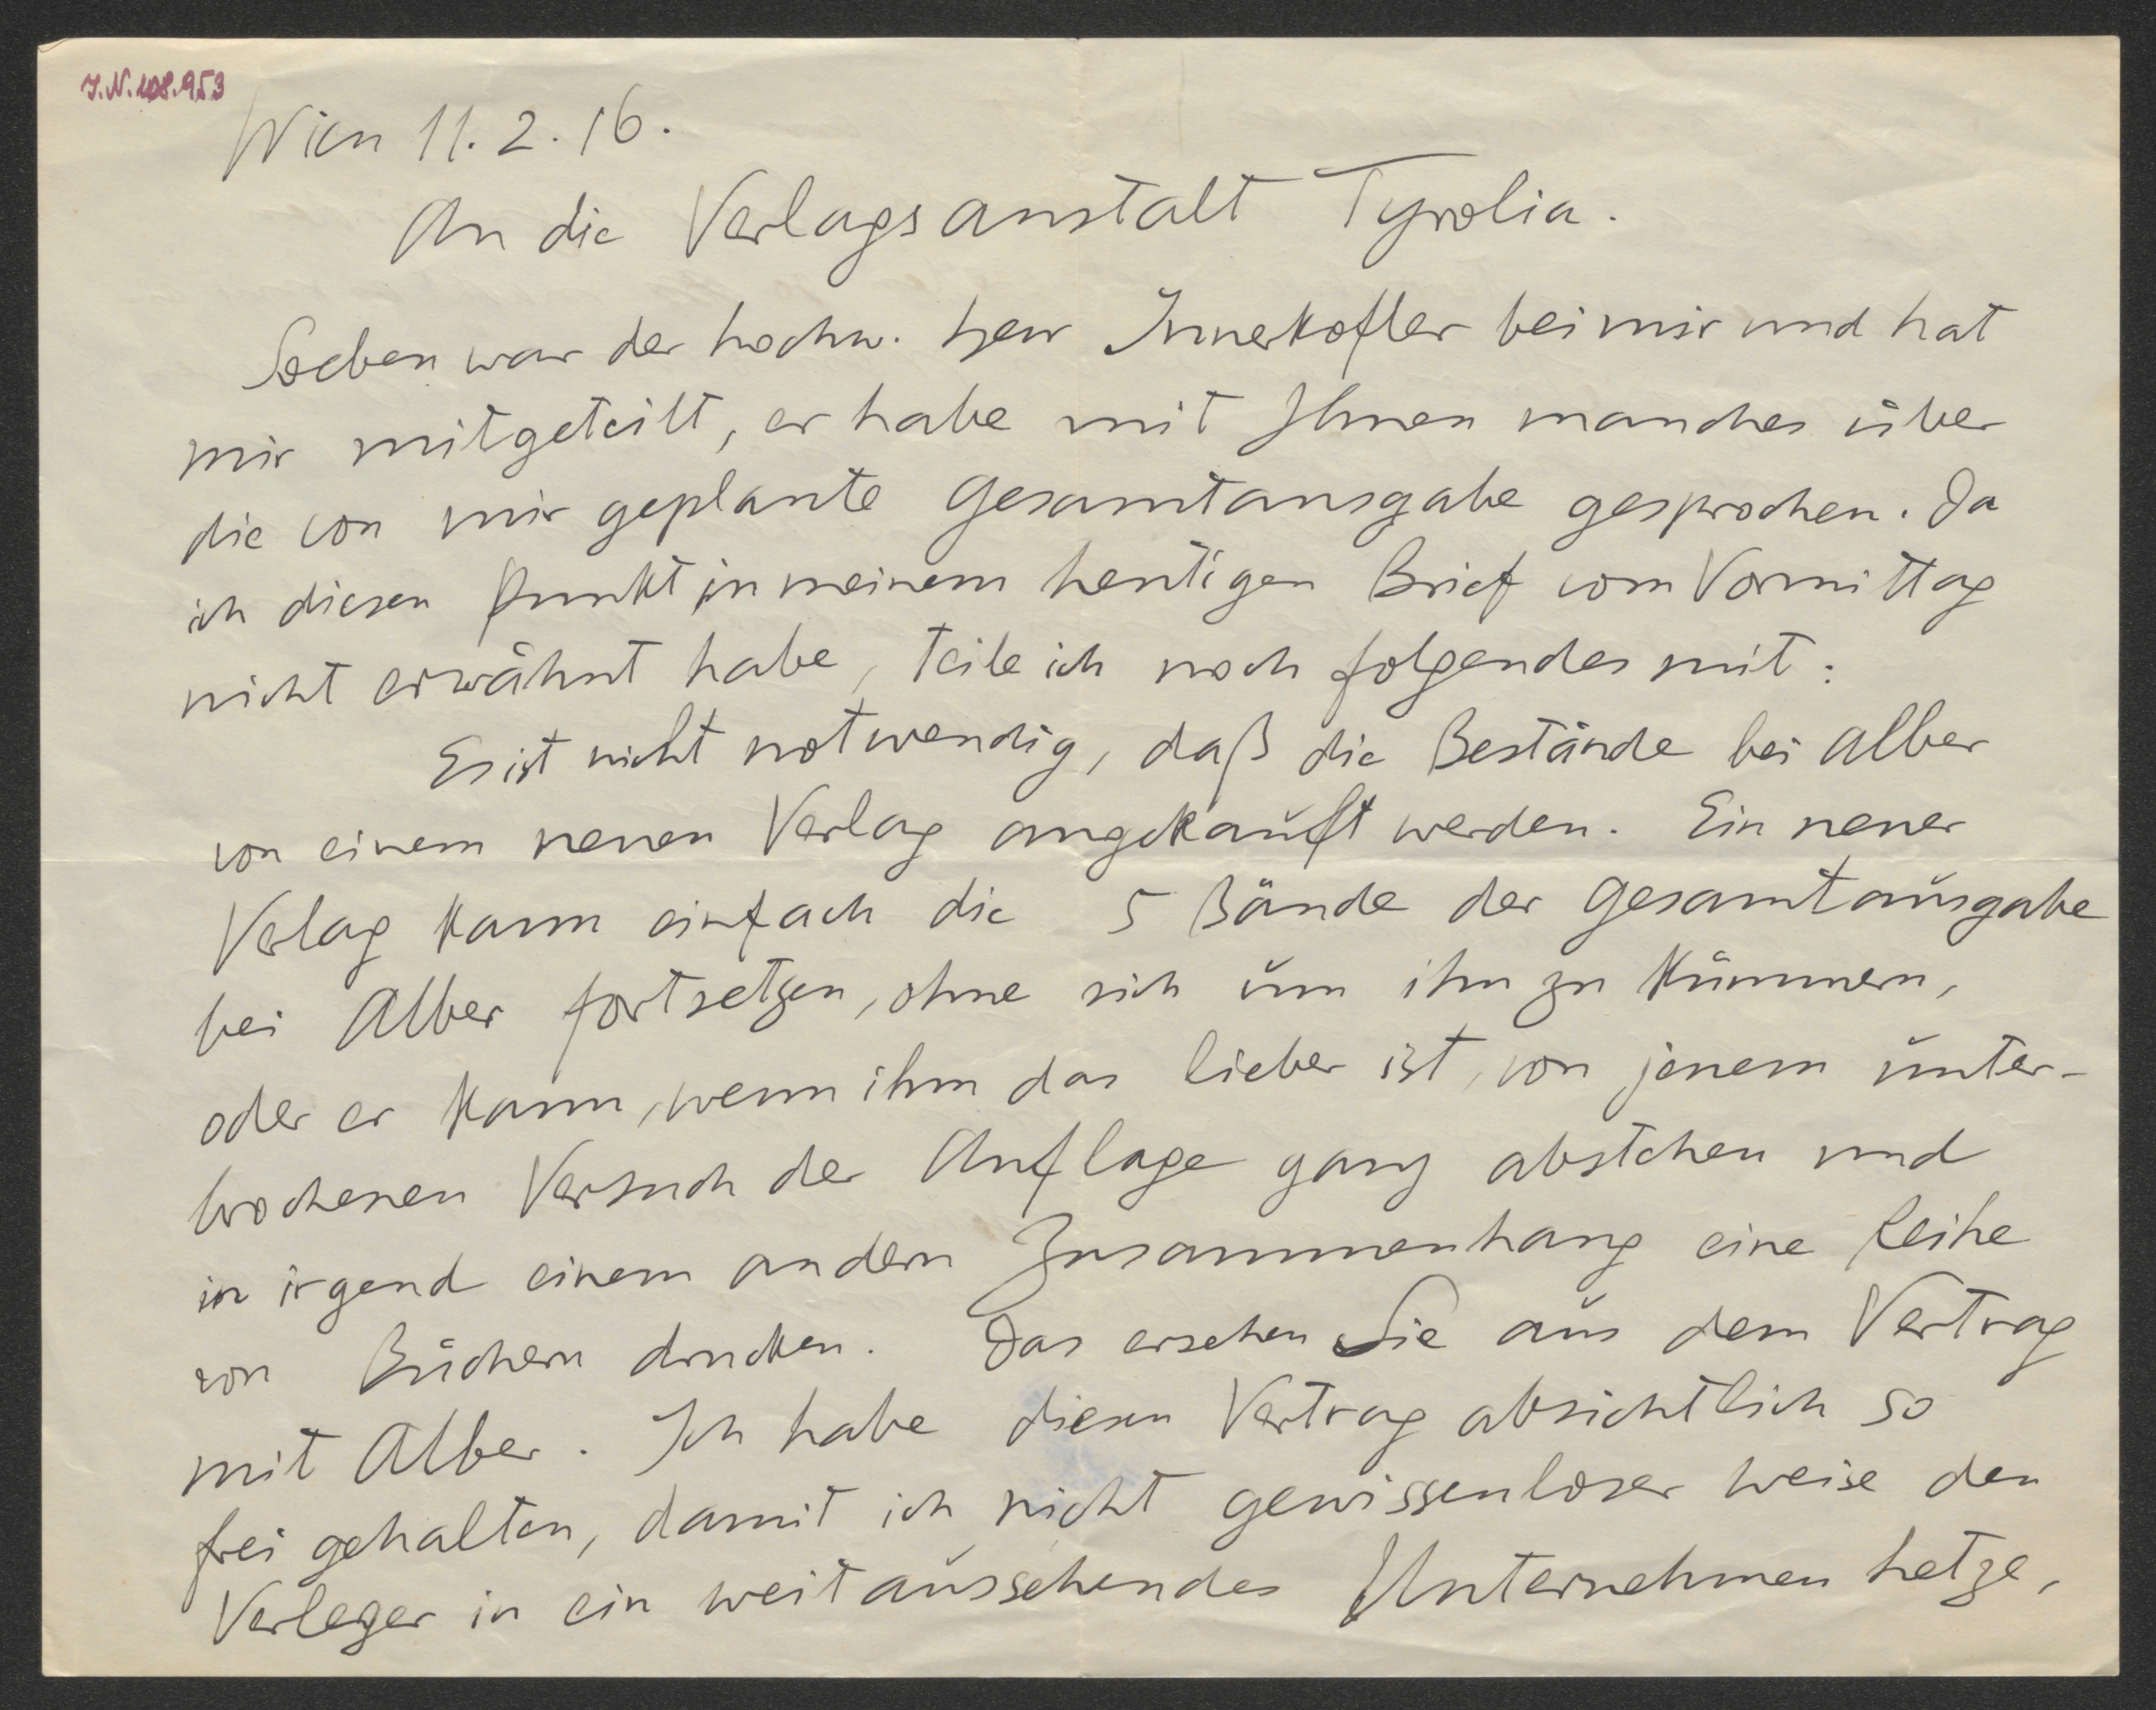 J.N. 108.953
Wien 11.2.16.
An die Verlagsanstalt Tyrolia.
Soeben war der hochw. Herr Innerkofler bei mir und hat
mir mitgeteilt, er habe mit Ihnen manches über
die von mir geplante Gesamtausgabe gesprochen. Da
ich diesen Punkt in meinem heutigen Brief vom Vormittag
nicht erwähnt habe, teile ich noch folgendes mit:
Es ist nicht notwendig, daß die Bestände bei Alber
von einem neuen Verlag angekauft werden. Ein neuer
Verlag kann einfach die 5 Bände der Gesamtausgabe
bei Alber fortsetzen, ohne sich um ihn zu kümmern,
oder er kann, wenn ihm das lieber ist, von jenem unter-
brochenen Versuch der Auflage ganz abstehen und
in irgend einem andern Zusammenhang eine Reihe
von Büchern drucken. Das ersehen Sie aus dem Vertrag
mit Alber. Ich habe diesen Vertrag absichtlich so
frei gehalten, damit ich nicht gewissenloser Weise den
Verleger in ein weitaussehendes Unternehmen hetze,